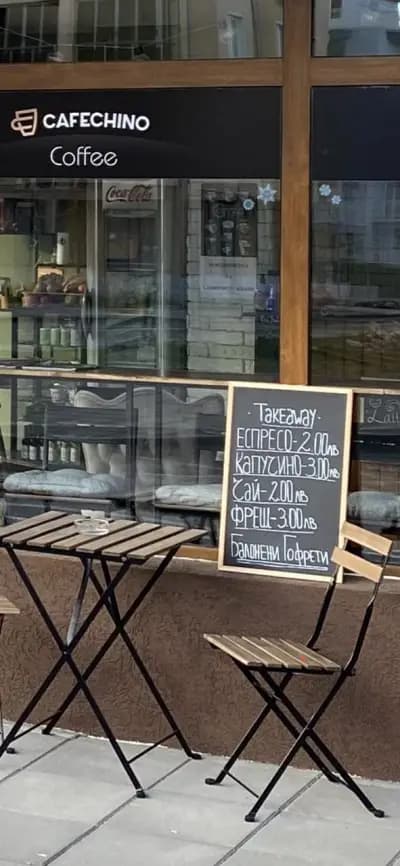 CAFECHINO
Coffee
Coca-Cola
· Takeaway ·
ЕСПРЕСО-2.00лв
КАПУЧИНО-3.00лв
Чай-2.00лв
ФРЕШ-3.00лв
Балонени Гофрети